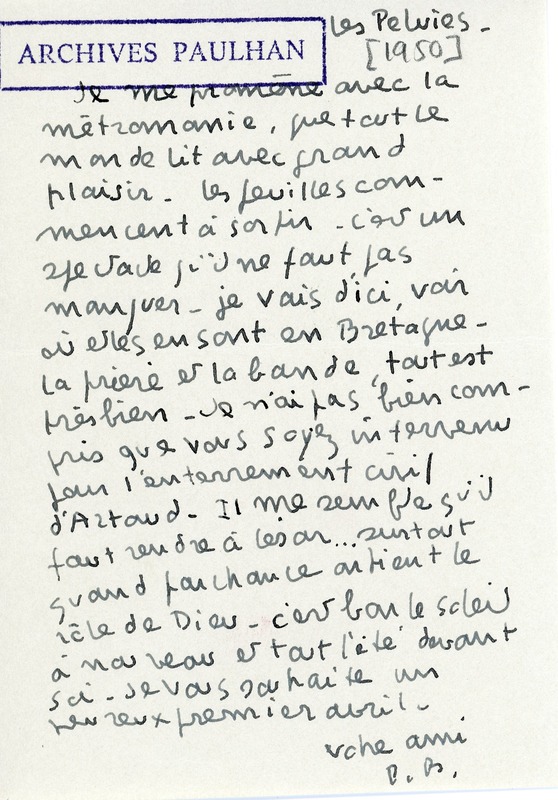 les Pelvies -
[1950]
ARCHIVES PAULHAN
Je me promène avec la
métromanie, que tout le
monde lit avec grand
plaisir - les feuilles com-
mencent à sortir - c'est un
spectacle qu'il ne faut pas
manquer - je vais d'ici, voir
où elles en sont en Bretagne -
la prière et la bande, tout est
très bien - Je n'ai pas bien com-
pris que vous soyez intervenu
pour l'enterrement civil
d'Artaud - Il me semble qu'il
faut rendre à César... surtout
quand par chance on tient le
rôle de Dieu - c'est bon le soleil
à nouveau et tout l'été devant
soi - Je vous souhaite un
heureux premier avril -
votre ami